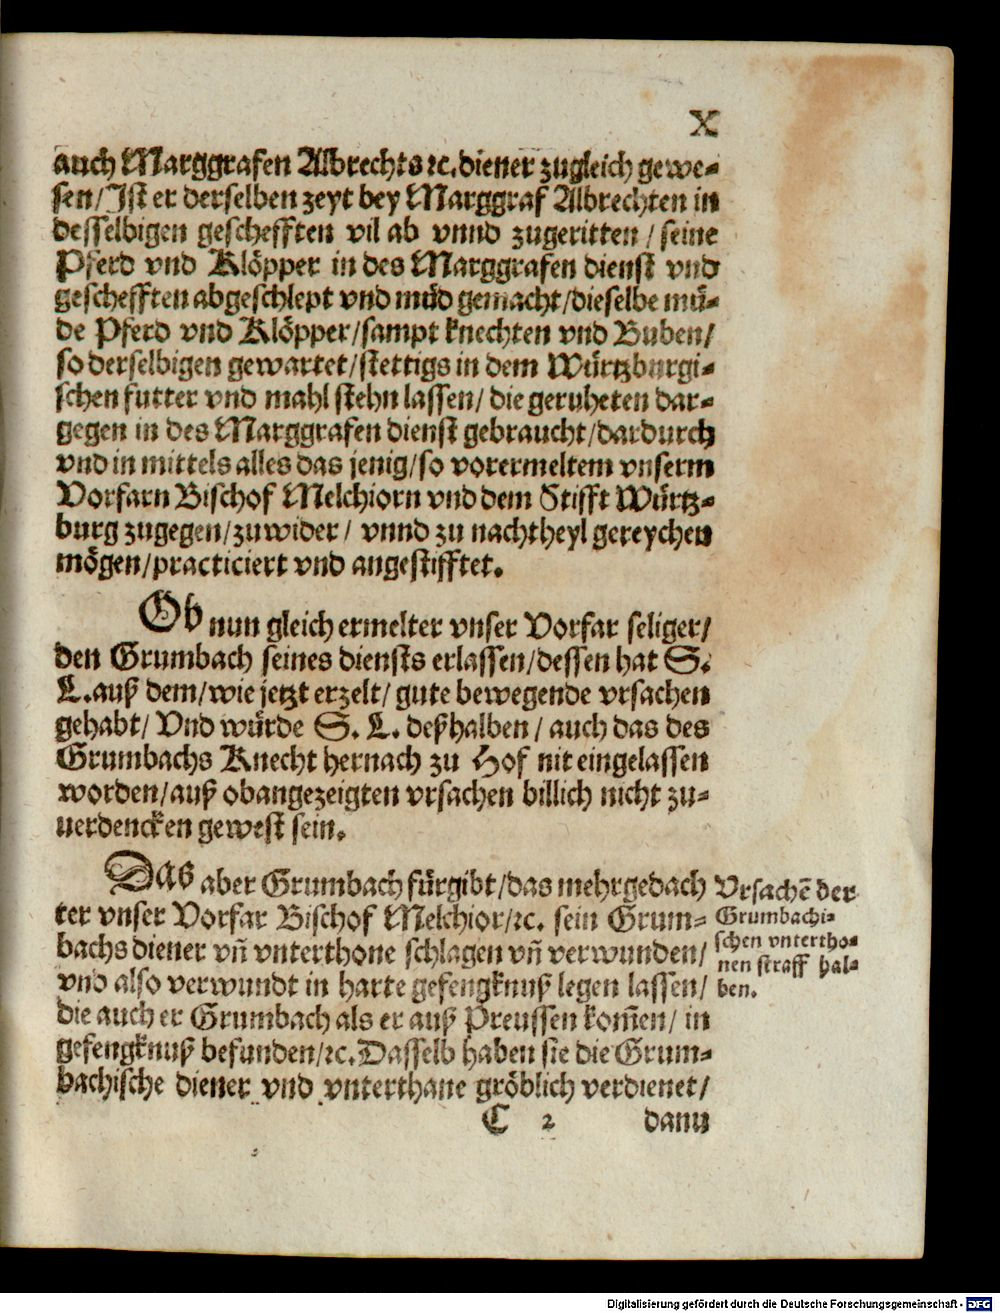 X
auch Marggrafen Albrechts ꝛc. diener zugleich gewe-
sen/ Ist er derselben zeyt bey Marggraf Albrechten in
desselbigen geschefften vil ab vnnd zugeritten / seine
Pferd vnd Klöpper in des Marggrafen dienst vnd
geschefften abgeschlept vnd müd gemacht/ dieselbe mü-
de Pferd vnd Klöpper/ sampt knechten vnd Buben/
so derselbigen gewartet/ stettigs in dem Würtzburgi-
schen futter vnd mahl stehn lassen/ die geruheten dar-
gegen in des Marggrafen dienst gebraucht/ dardurch
vnd in mittels alles das jenig/ so vorermeltem vnserm
Vorfarn Bischof Melchiorn vnd dem Stifft Würtz-
burg zugegen/ zuwider/ vnnd zu nachtheyl gereychen
mögen/ practiciert vnd angestifftet.
Ob nun gleich ermelter vnser Vorfar seliger/
den Grumbach seines diensts erlassen/ dessen hat S.
L. auß dem/ wie jetzt erzelt/ gute bewegende vrsachen
gehabt/ Vnd würde S. L. deßhalben / auch das des
Grumbachs Knecht hernach zu Hof nit eingelassen
worden/ auß obangezeigten vrsachen billich nicht zu-
uerdencken gewest sein.
Das aber Grumbach fürgibt/ das mehrgedach
ter vnser Vorfar Bischof Melchior/ ꝛc. sein Grum-
bachs diener vñ vnterthone schlagen vñ verwunden/
vnd also verwundt in harte gefengknuß legen lassen/
die auch er Grumbach als er auß Preussen kom̃en/ in
gefengknuß befunden/ ꝛc. Dasselb haben sie die Grum-
bachische diener vnd vnterthane gröblich verdienet/
C 2 dann
Vrsachẽ der
Grumbachi-
schen vntertho-
nen straff hal-
ben.
Digitalisierung gefördert durch die Deutsche Forschungsgemeinschaft - DFG